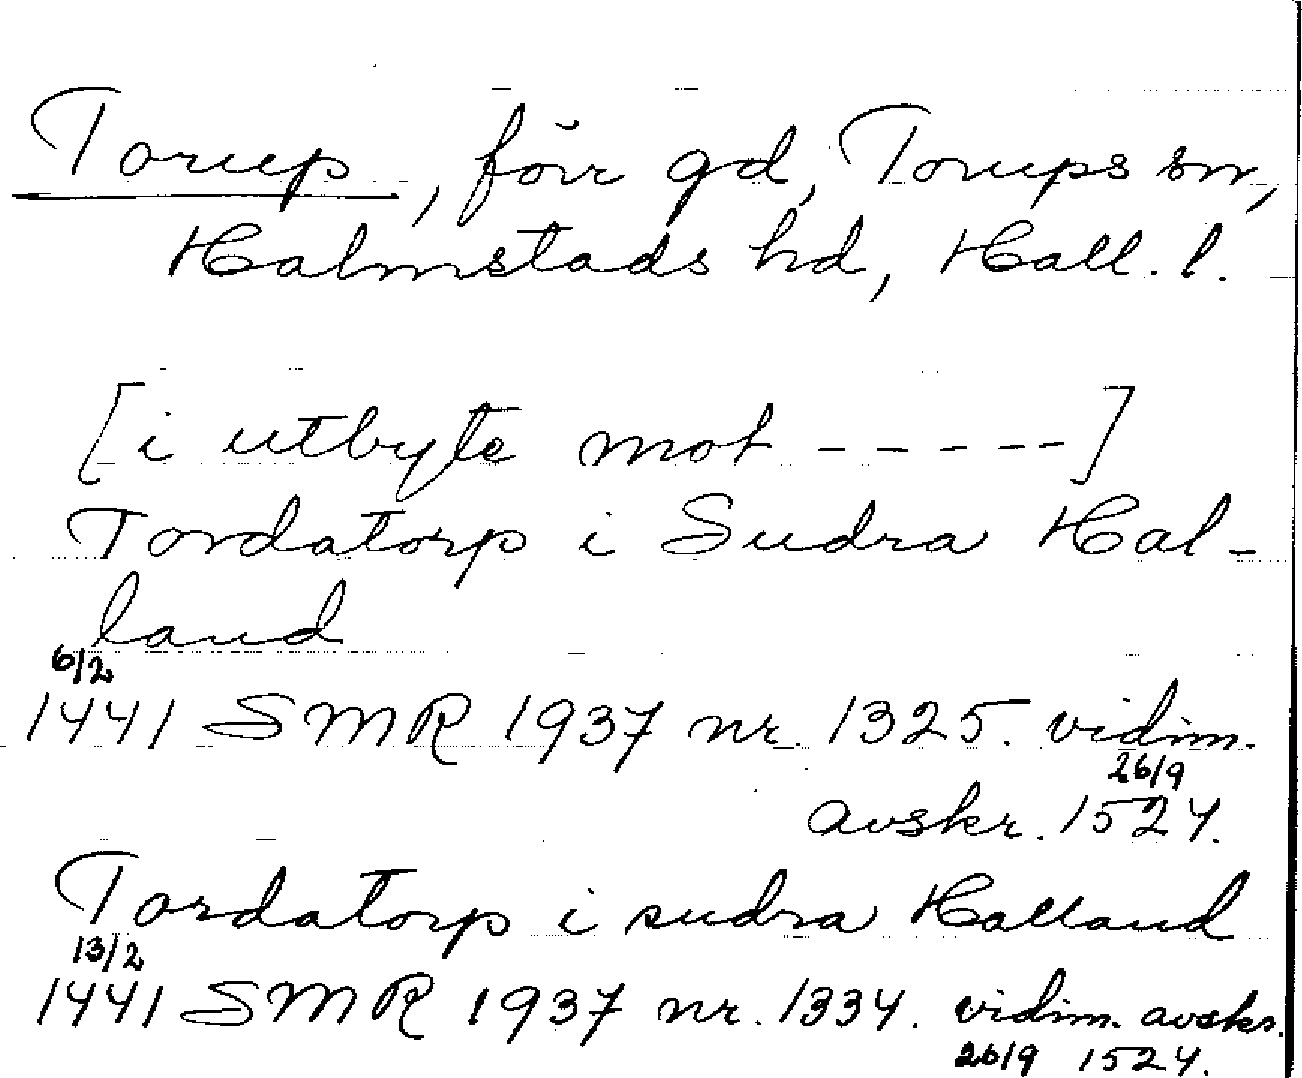 Torup, förr gd, Torups sn,
Halmstads hd, Hall. l.
[i utbyte mot - - - - -]
Tordatorp i Sudra Hal-
land
6/2
1441 SMR 1937 nr. 1325. vidim.
26/9
avskr. 1524.
Tordatorp i sudra Halland
13/2
1441 SMR 1937 nr. 1334. vidim. avskr.
26/9 1524.